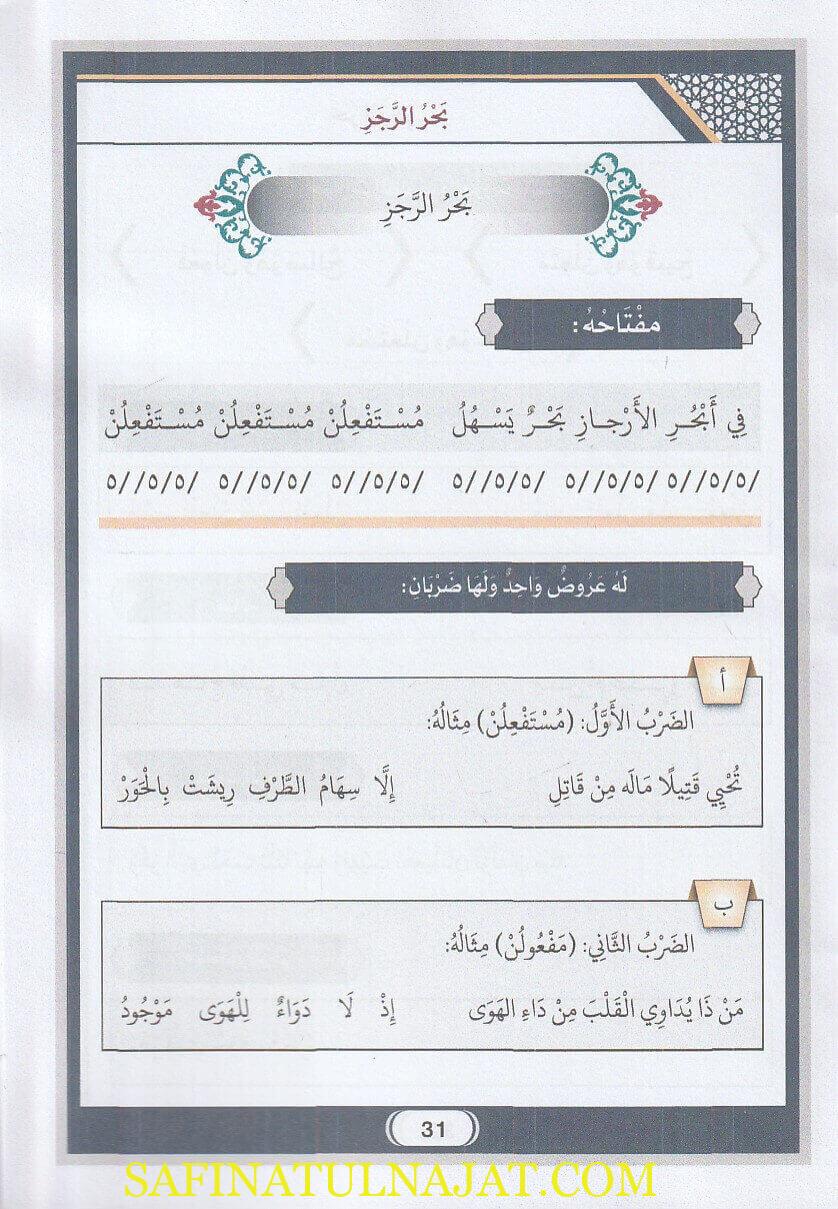 بَحْرُ الرَّجَزِ
بَحْرُ الرَّجَزِ
مفْتَاحْهُ:
فِي أَبْحُرِ الأَرْجـازِ بَحْرٌ يَسْـهُلُ مُسْـتَفْعِلُنْ مُسْـتَفْعِلُنْ مُسْـتَفْعِلُنْ
/٥/٥//٥ /٥/٥//٥ /٥/٥//٥ /٥/٥//٥ /٥/٥//٥ /٥/٥//٥
لَهُ عَرُوضٌ وَاحِدٌ وَلَهَا ضَرْبَانِ:
أ
الضَرْبُ الأَوَّلُ: (مُسْتَفْعِلُنْ) مِثَالُهُ:
تُحْيِي قَتِيلًا مَالَه مِنْ قَاتِلِ إِلَّا سِهَامُ الطَّرْفِ رِيشَتْ بِالْحَوَرْ
ب
الضَرْبُ الثَّانِي: (مَفْعُولُنْ) مِثَالُهُ:
مَنْ ذَا يُدَاوِي الْقَلْبَ مِنْ دَاءِ الهَوَى إِذْ لَا دَوَاءٌ لِلْهَوَى مَوْجُودُ
31
SAFINATULNAJAT.COM